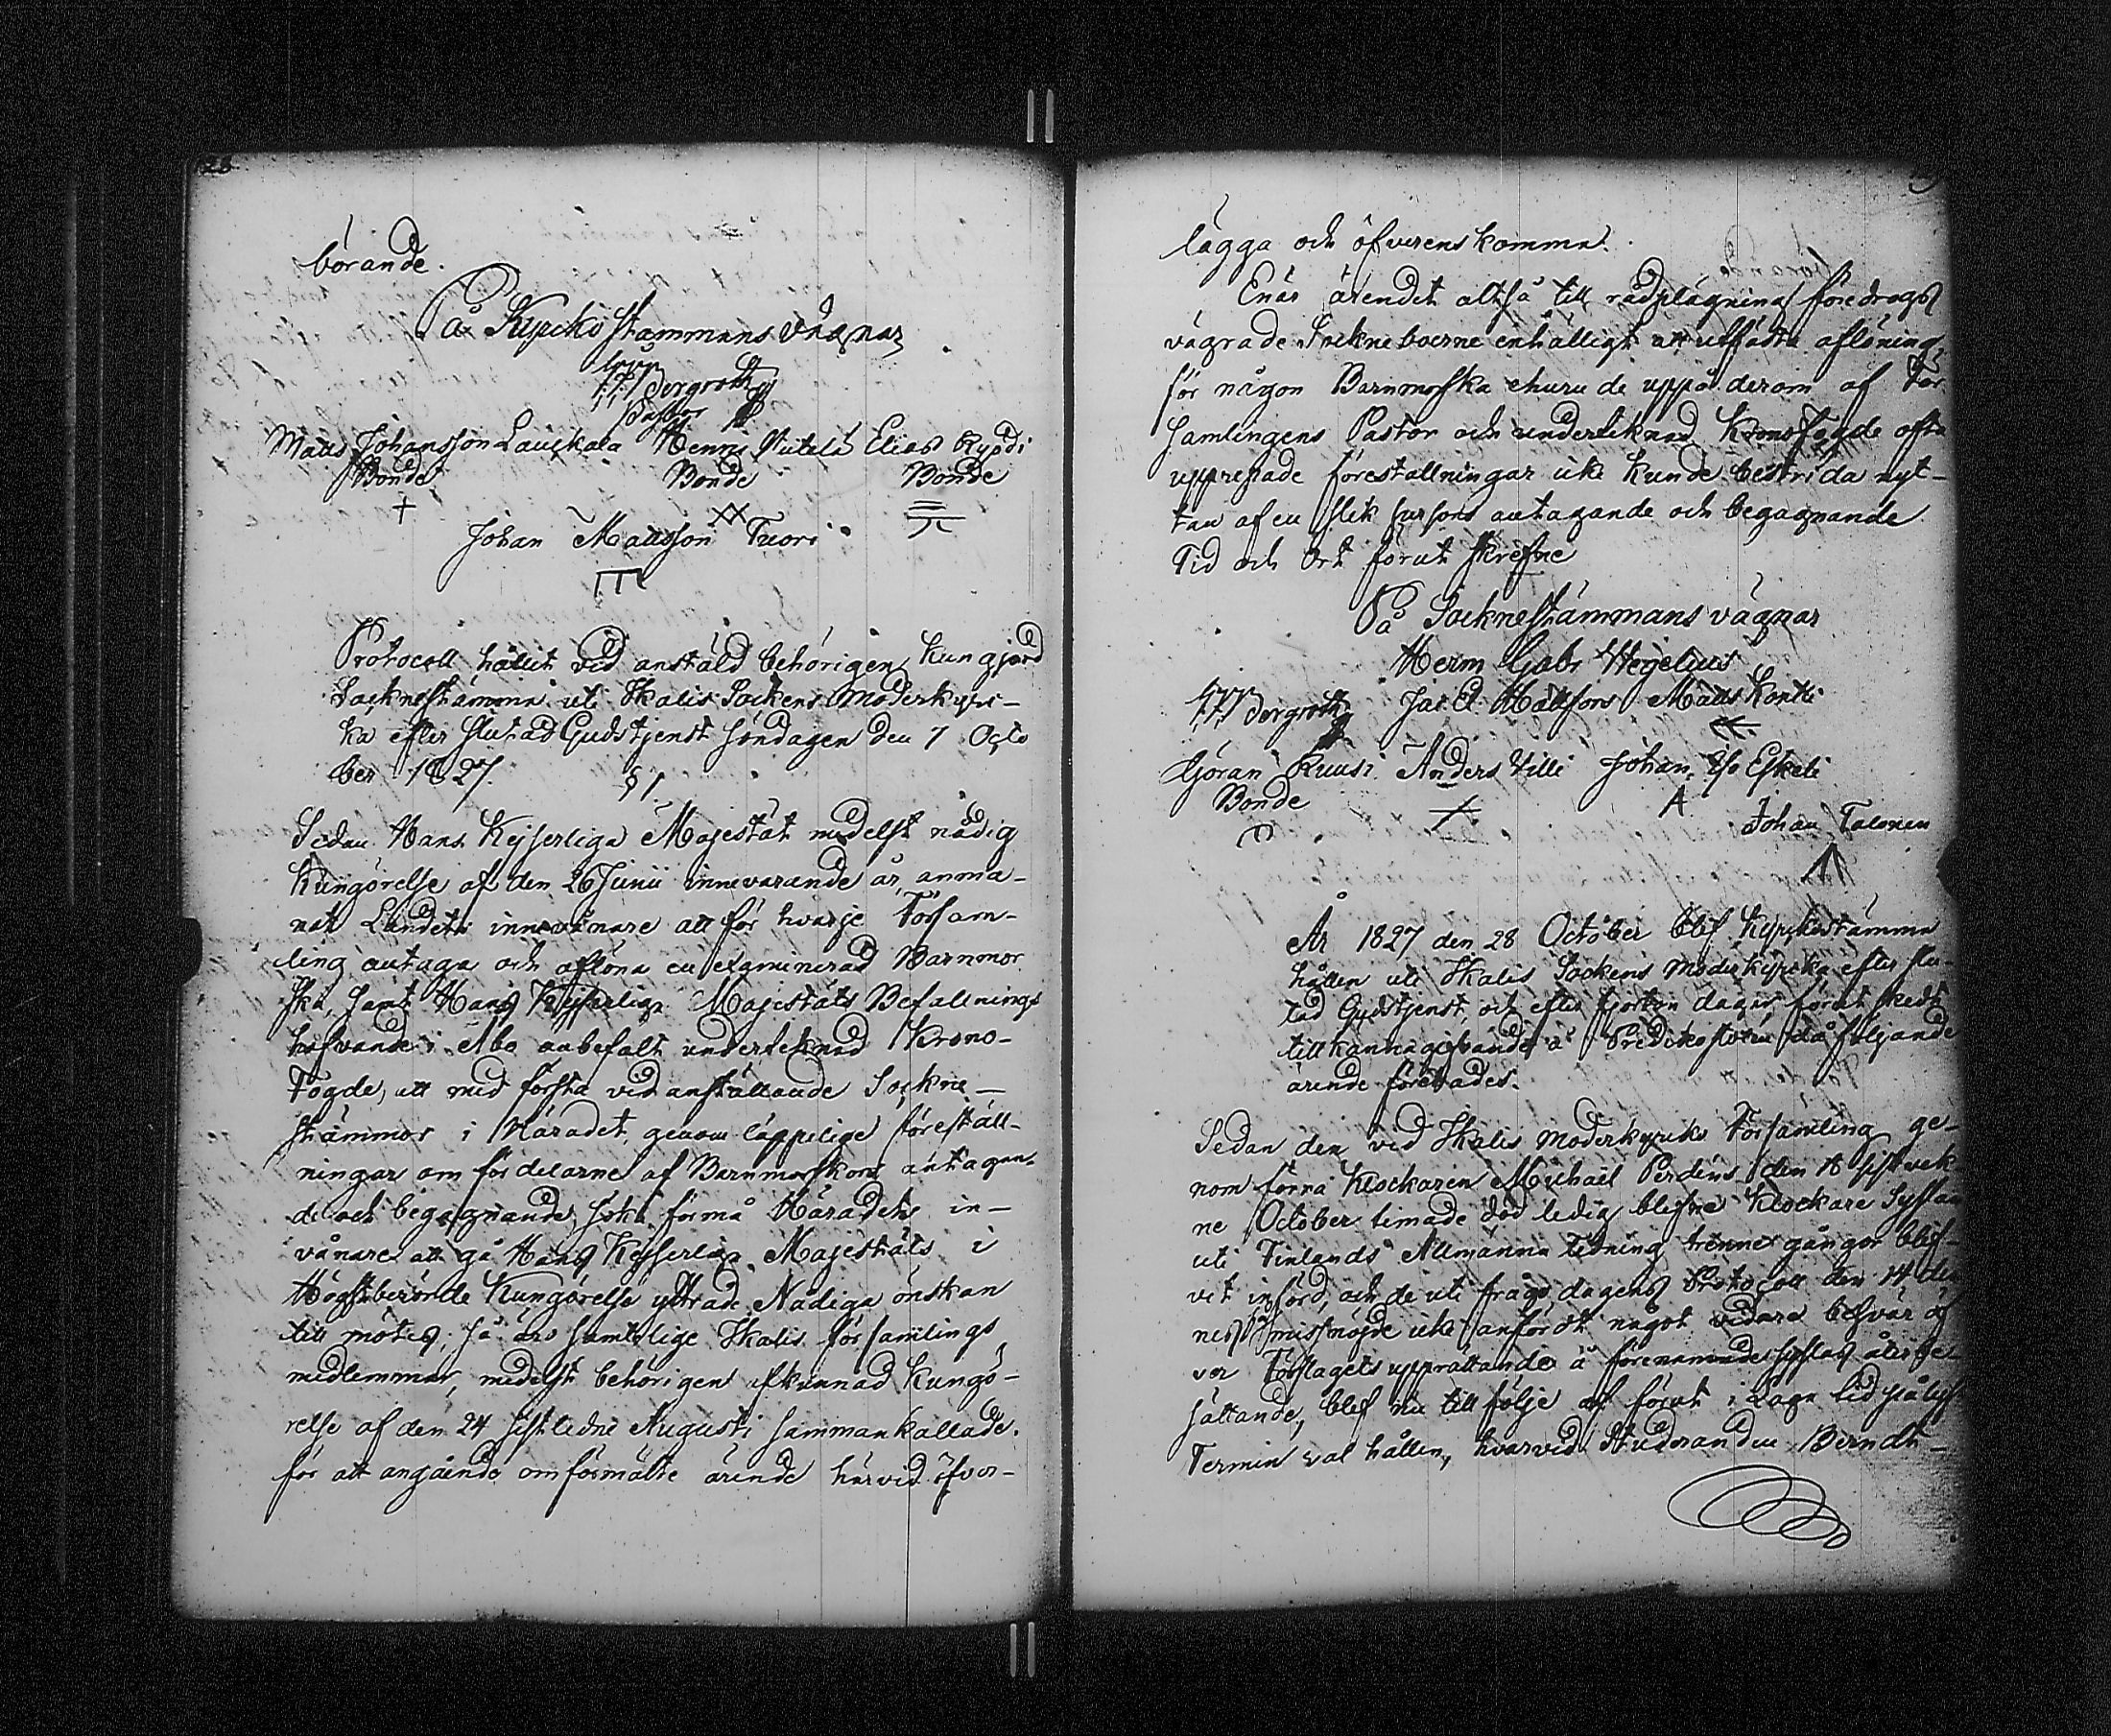 börande.
På Kyrckostämmans vägnar
Borgroth
Pastor
Matts Johansson Lauckala Henric Viitala Elias Ryödi
Bonde Bonde Bonde
Johan Mattsson Tuori
Protocoll hållit vid anstäld behörigen kungjord
Socknestämma uti Ikalis Sockens Moderkyrc-
ka efter slutad Gudstjenst söndagen den 7 Octo
ber 1827.
§ 1.
Sedan Hans Kejserliga Majestät medelst nådig
Kungörelse af den 26 Junii innevarande år anma-
nat Landets innevånare att för hvarje Försam-
ling antaga och aflöna en examinerad Barnmor
ska, samt Hans Kejserliga Majestäts Befallnings
hafvande i Åbo anbefalt undertecknad Krono-
Fogde, att med första vid anställande Sockne-
stämmor i Häradet genom läppelige föreställ-
ningar om fördelarne af Barnmorskors antagan-
de och begagnande söka förmå Häradets in-
vånare att gå Hans Kejserliga Majestäts i
Högstberörde Kungörelse yttrade Nådiga önskan
till mötes; så äro samtelige Ikalis församlings
medlemmar, medelst behörigen utkunnad Kungö-
relse af den 24 sistledne Augusti sammankallade.
för att angående omförmälte ärende härvid öfver-
lägga och öfverenskomma.
Enär ärendet altså till rådplägning föredrogs
vägrade Sockneboerne enhälligt att utfästa aflöning
för någon Barnmorska ehuru de uppå derom af För
samlingens Pastor och undertecknad Kronofogde ofta
upprepade föreställningar icke kunde bestrida nyt-
tan af en slik persons antagande och begagnande
Tid och Ort förut skrefne
På Socknestämmans vägnar
Herm Gabr Hegelius
Borgroth Jac Ed Hallfors Matts Kontti
Göran Kuusi Anders Villi Johan Iso Eskeli
Bonde
Johan Talonen
År 1827 den 28 October blef Kyrckostämma
hållen uti Ikalis Sockens Moderkyrcka efter slu-
tad Gudstjenst och efter fjorton dagar förut skedt
tillkännagifvande å Predikostolen då följande
ärende förettades.
Sedan den vid Ikalis moderkyrcko Församling ge-
nom förra Klockaren Michael Perdens den 18 sistvek
ne October timade död ledig blefne Klockare Syslan
uti Finlands Allmänna Tidning trenne gångor blif-
vit införd, och de uti frågodagens Protocoll den 14 den
nes missnöjde icke anfördt något vidare besvär öf
ver Förslagets upprättande å förenämnde syslas återbe-
sättande, blef nu till följe af förut i Laga tid pålyst
Termin val hållen, hvarvid Studeranden Berndt-